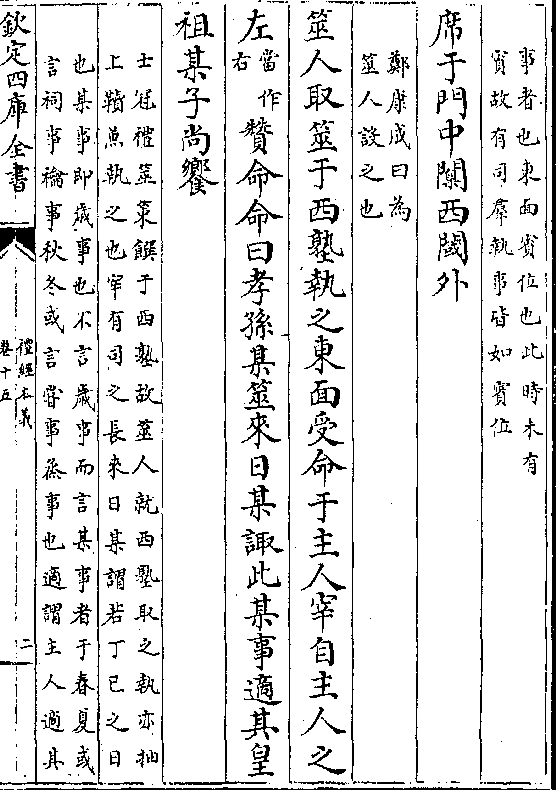 事者也東面賓位也此時未有
賓故有司羣執事皆如賓位
席于門中闑西閾外
鄭康成曰為
筮人設之也
筮人取筮于西塾執之東面受命于主人宰自主人之
左當作右贊命命曰孝孫某筮來日某諏此某事適其皇
祖某子尚饗
士冠禮筮筴饌于西塾故筮人就西塾取之執亦抽
上韇兼執之也宰有司之長來日某謂若丁已之日
也某事即歲事也不言歲事而言某事者于春夏或
言祠事禴事秋冬或言嘗事烝事也適謂主人適其
欽定四庫全書
禮經本義
卷十五
二